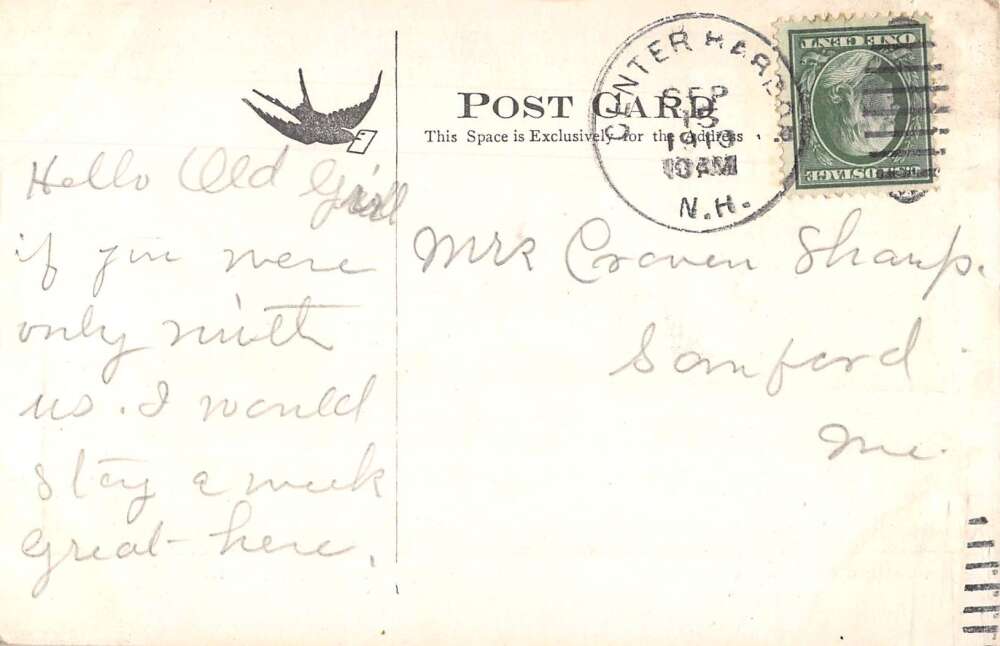 Hello Old Girl
if you were
only with
us. I would
stay a week
great here.
POST CARD
This Space is Exclusively for the Address
CENTER HARBOR
SEP
15
10 AM
N.H.
ONE CENT
U.S. POSTAGE
Mrs Craven Sharp.
Sanford
Me.